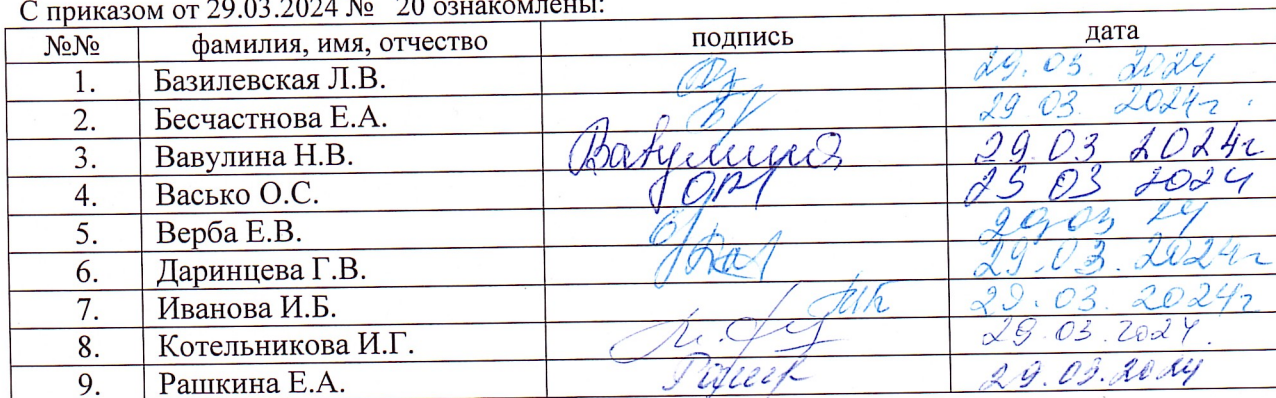 С приказом от 29.03.2024 № 20 ознакомлены:
№№ фамилия, имя, отчество подпись дата
1. Базилевская Л.В. 29.03.2024
2. Бесчастнова Е.А. 29 03. 2024г.
3. Вавулина Н.В. Вавулина 29.03 2024г
4. Васько О.С. 25 03 2024
5. Верба Е.В. 29.03 24
6. Даринцева Г.В. 29.03.2024г
7. Иванова И.Б. 29.03.2024г
8. Котельникова И.Г. 29.03.2024.
9. Рашкина Е.А. 29.03.2024